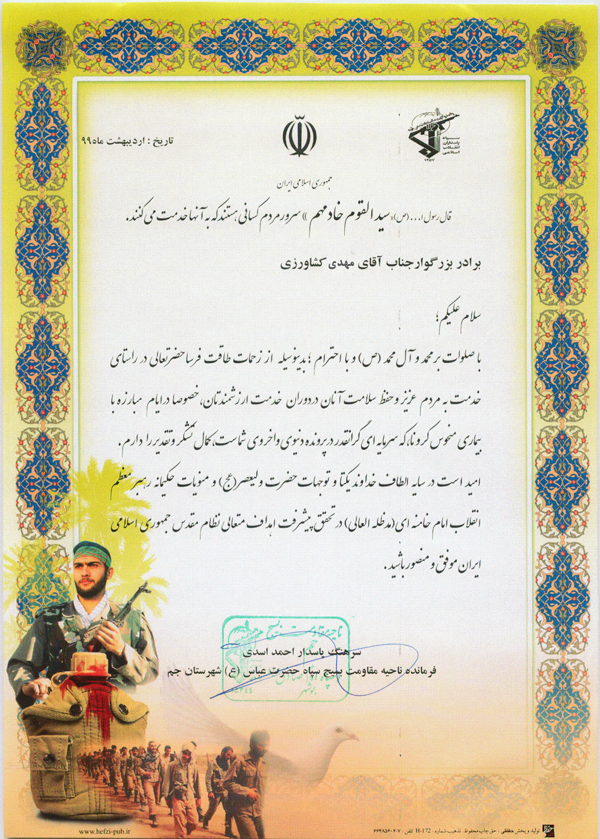 تاریخ : اردیبهشت ماه ۹۹
سپاه
پاسداران
انقلاب
اسلامی
جمهوری اسلامی ایران
قال رسول ا... (ص): «سید القوم خادمهم» سرور مردم کسانی هستند که به آنها خدمت می کنند.
برادر بزرگوار جناب آقای مهدی کشاورزی
سلام علیکم؛
با صلوات بر محمد و آل محمد (ص) و با احترام ؛ بدینوسیله از زحمات طاقت فرسا حضرتعالی در راستای
خدمت به مردم عزیز و حفظ سلامت آنان در دوران خدمت ارزشمندتان، خصوصا در ایام مبارزه با
بیماری منحوس کرونا، که سرمایه ای گرانقدر در پرونده دنیوی و اخروی شماست، کمال تشکر و تقدیر را دارم.
امید است در سایه الطاف خداوند یکتا و توجهات حضرت ولیعصر (عج) و منویات حکیمانه رهبر معظم
انقلاب امام خامنه ای (مدظله العالی) در تحقق پیشرفت اهداف متعالی نظام مقدس جمهوری اسلامی
ایران موفق و منصور باشید .
سرهنگ پاسدار احمد اسدی
فرمانده ناحیه مقاومت بسیج سپاه حضرت عباس (ع) شهرستان جم
www.hefzi-pub.ir
تولید و پخش حفظی . حق چاپ محفوظ تذهیب شماره: H-172 تلفن: ۷-۶۶۴۸۵۶۰۶